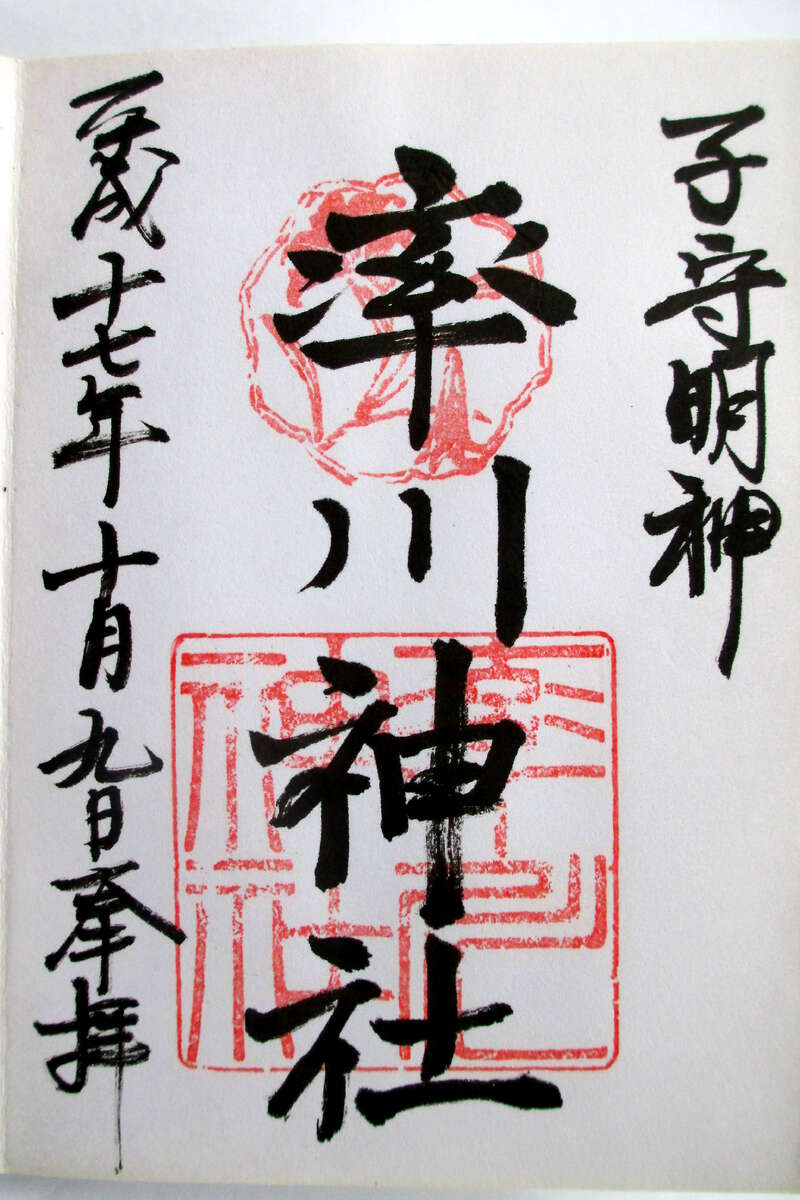 子守明神
率川神社
平成十七年十月九日奉拝